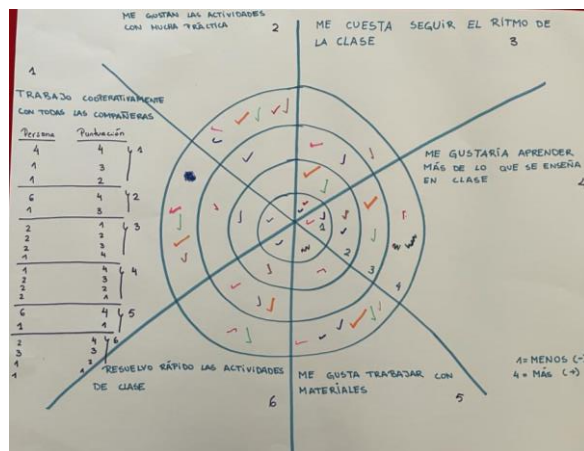 ME GUSTAN LAS ACTIVIDADES
CON MUCHA PRÁCTICA
2
ME CUESTA SEGUIR EL RITMO DE
LA CLASE
3
1
TRABAJO COOPERATIVAMENTE
CON TODAS LAS COMPAÑERAS
Persona Puntuación
4 4 1
1 3
1 2
6 4 2
1 3
2 1 3
2 2
2 3
1 4
1 4 4
2 3
2 2
2 1
6 4 5
1 1
2 4 6
3 3
1 2
1 1
ME GUSTARÍA APRENDER
MÁS DE LO QUE SE ENSEÑA
EN CLASE
4
1
2
3
4
RESUELVO RÁPIDO LAS ACTIVIDADES
DE CLASE
6
ME GUSTA TRABAJAR CON
MATERIALES
5
1= MENOS (-)
4= MÁS (+)